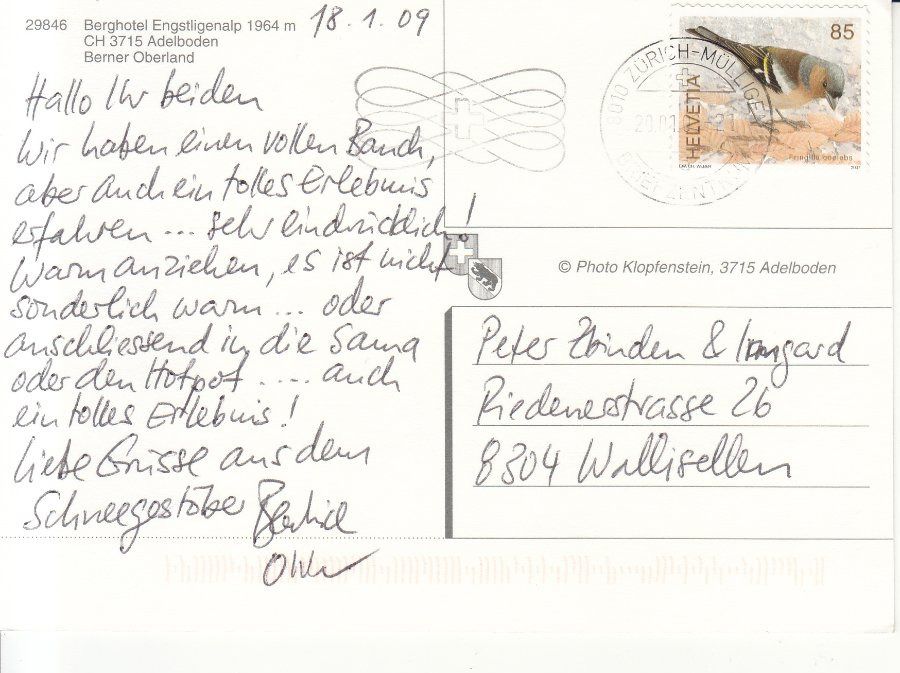 29846 Berghotel Engstligenalp 1964 m
CH 3715 Adelboden
Berner Oberland
18.1.09
Hallo Ihr beiden
Wir haben einen vollen Bauch,
aber auch ein tolles Erlebnis
erfahren ... sehr eindrücklich!
Warm anziehen, es ist nicht
sonderlich warm ... oder
anschliessend in die Sauna
oder den Hotpot .... auch
ein tolles Erlebnis!
Liebe Grüsse aus dem
Schneegestöber
85
HELVETIA
Fringilla coelebs
8010 ZÜRICH-MÜLLIGEN
20.01.
© Photo Klopfenstein, 3715 Adelboden
Peter Zbinden & Irmgard
Riedenerstrasse 26
8304 Wallisellen